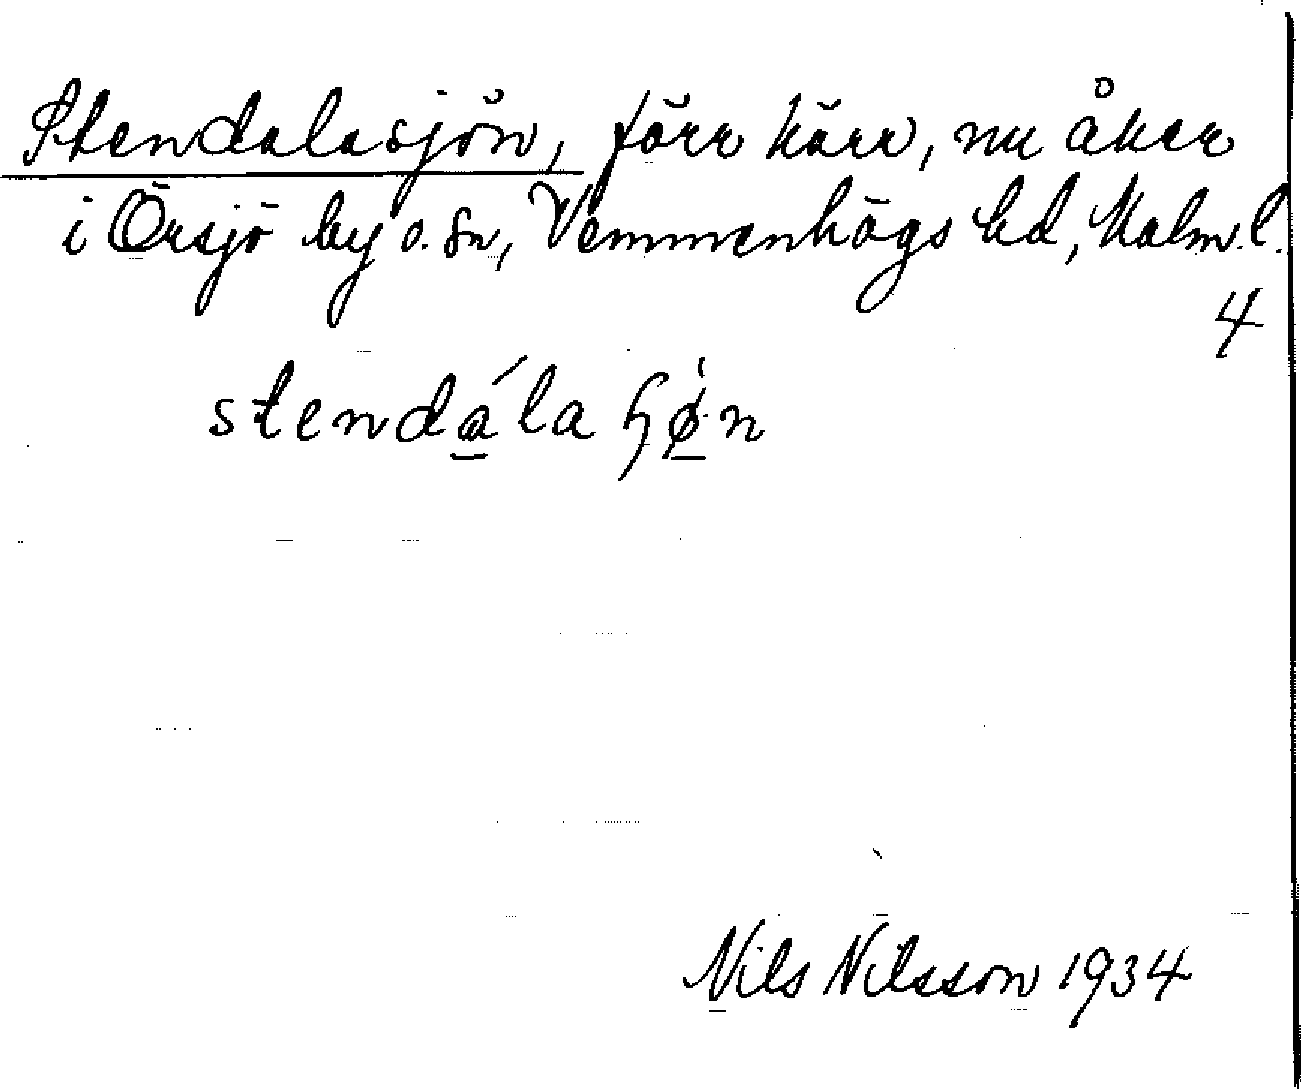 Stendalasjön, förr kärr, nu åker
i Örsjö by o. sn, Vemmenhögs hd, Malm. l.
4
stendá̱la ɧø̱̀n
Nils Nilsson 1934